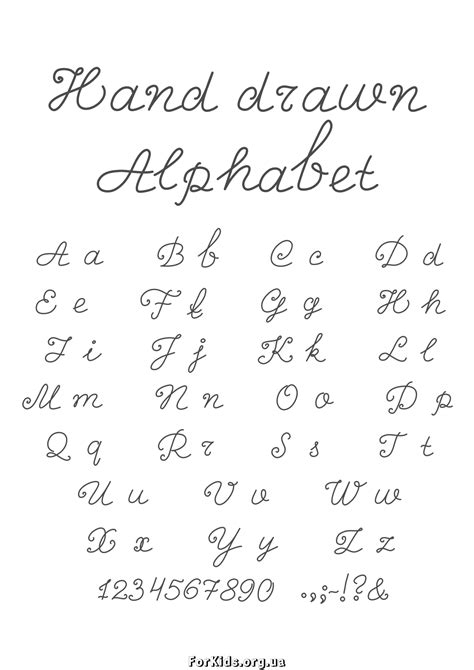 Hand drawn
Alphabet
A a B b C c D d
E e F f G g H h
I i J j K k L l
M m N n O o P p
Q q R r S s T t
U u V v W w
X x Y y Z z
1234567890 .,;~!?&
ForKids.org.ua